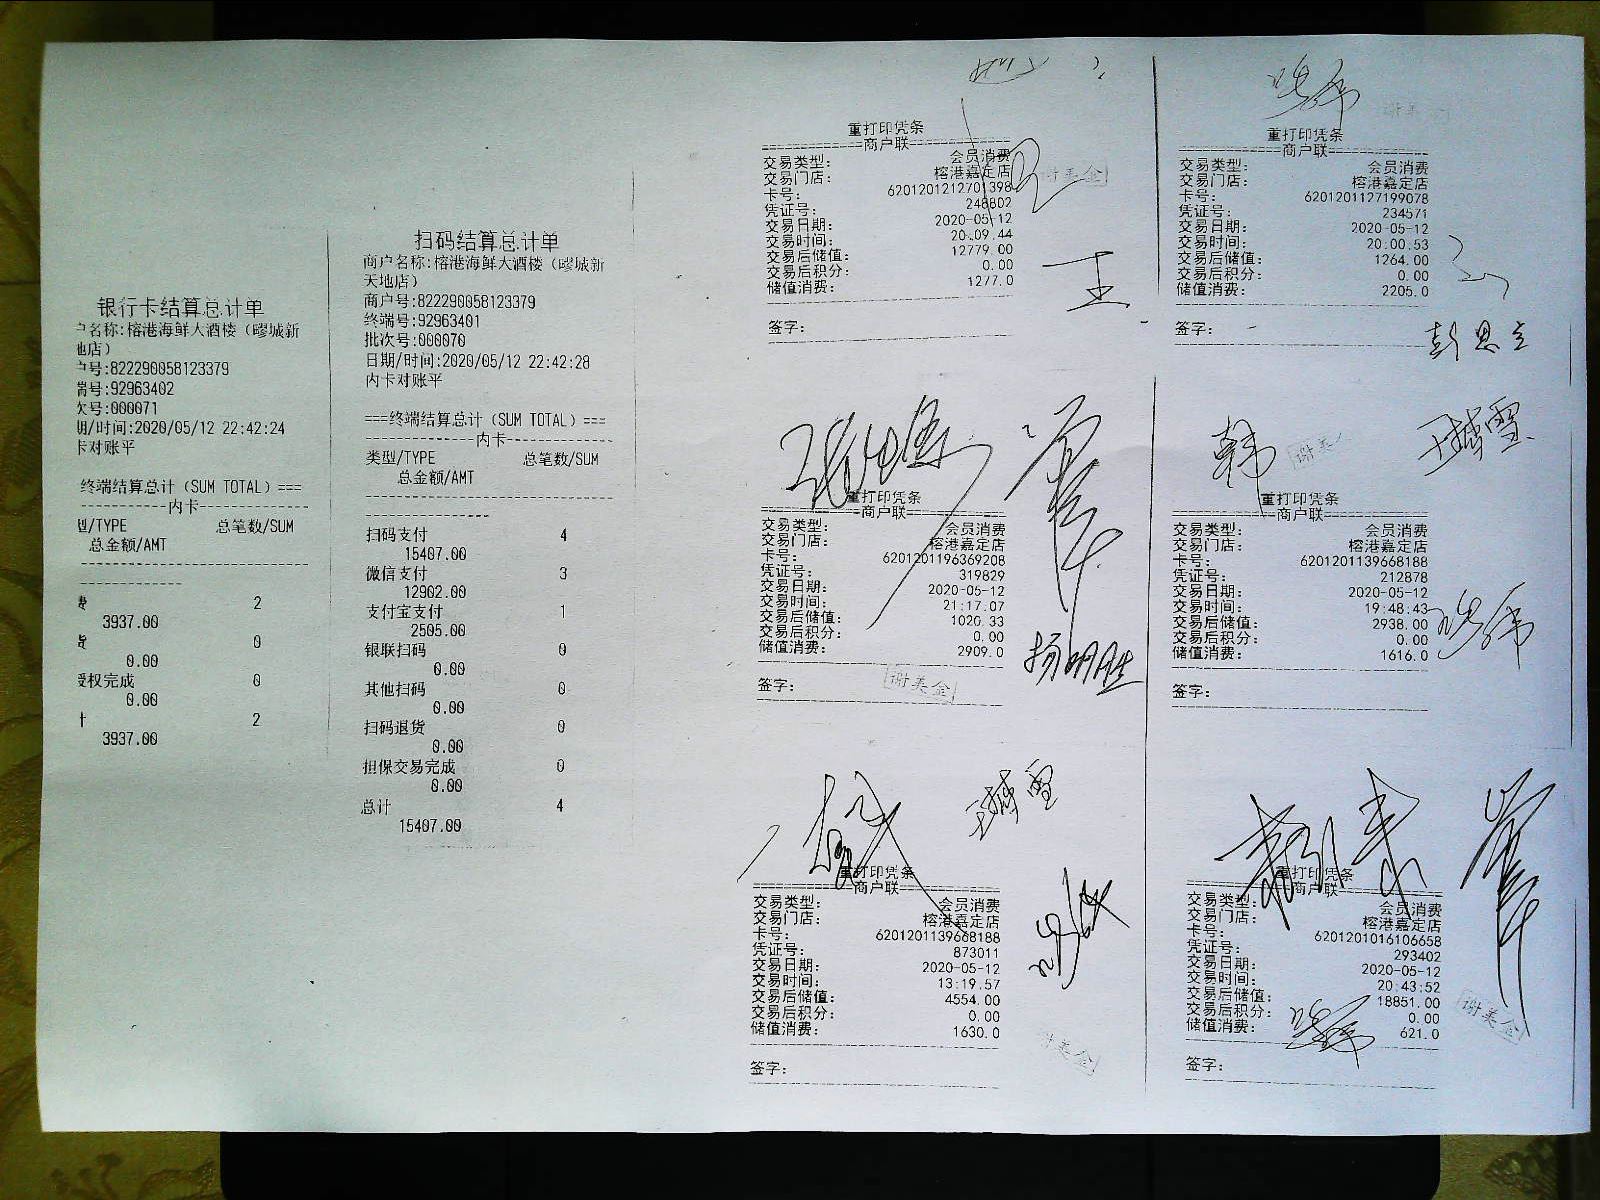 银行卡结算总计单
户名称:榕港海鲜大酒楼（疁城新
地店）
户号:822290058123379
端号:92963402
次号:000071
期/时间:2020/05/12 22:42:24
卡对账平
终端结算总计（SUM TOTAL）===
内卡
型/TYPE 总笔数/SUM
总金额/AMT
费 2
3937.00
货 0
0.00
授权完成 0
0.00
计 2
3937.00
扫码结算总计单
商户名称:榕港海鲜大酒楼（疁城新
天地店）
商户号:822290058123379
终端号:92963401
批次号:000070
日期/时间:2020/05/12 22:42:28
内卡对账平
===终端结算总计（SUM TOTAL）===
内卡
类型/TYPE 总笔数/SUM
总金额/AMT
扫码支付 4
15407.00
微信支付 3
12902.00
支付宝支付 1
2505.00
银联扫码 0
0.00
其他扫码 0
0.00
扫码退货 0
0.00
担保交易完成 0
0.00
总计 4
15407.00
重打印凭条
商户联
交易类型: 会员消费
交易门店: 榕港嘉定店
卡号: 6201201212701398
凭证号: 248802
交易日期: 2020-05-12
交易时间: 20:09:44
交易后储值: 12779.00
交易后积分: 0.00
储值消费: 1277.0
签字:
谢美金
王
重打印凭条
商户联
交易类型: 会员消费
交易门店: 榕港嘉定店
卡号: 6201201127199078
凭证号: 234571
交易日期: 2020-05-12
交易时间: 20:00:53
交易后储值: 1264.00
交易后积分: 0.00
储值消费: 2205.0
签字:
谢美金
重打印凭条
商户联
交易类型: 会员消费
交易门店: 榕港嘉定店
卡号: 6201201196369208
凭证号: 319829
交易日期: 2020-05-12
交易时间: 21:17:07
交易后储值: 1020.33
交易后积分: 0.00
储值消费: 2909.0
签字:
谢美金
杨明胜
韩
谢美
重打印凭条
商户联
交易类型: 会员消费
交易门店: 榕港嘉定店
卡号: 6201201139668188
凭证号: 212878
交易日期: 2020-05-12
交易时间: 19:48:43
交易后储值: 2938.00
交易后积分: 0.00
储值消费: 1616.0
签字:
重打印凭条
商户联
交易类型: 会员消费
交易门店: 榕港嘉定店
卡号: 6201201139668188
凭证号: 873011
交易日期: 2020-05-12
交易时间: 13:19:57
交易后储值: 4554.00
交易后积分: 0.00
储值消费: 1630.0
签字:
谢美金
重打印凭条
商户联
交易类型: 会员消费
交易门店: 榕港嘉定店
卡号: 6201201016106658
凭证号: 293402
交易日期: 2020-05-12
交易时间: 20:43:52
交易后储值: 18851.00
交易后积分: 0.00
储值消费: 621.0
签字:
谢美金